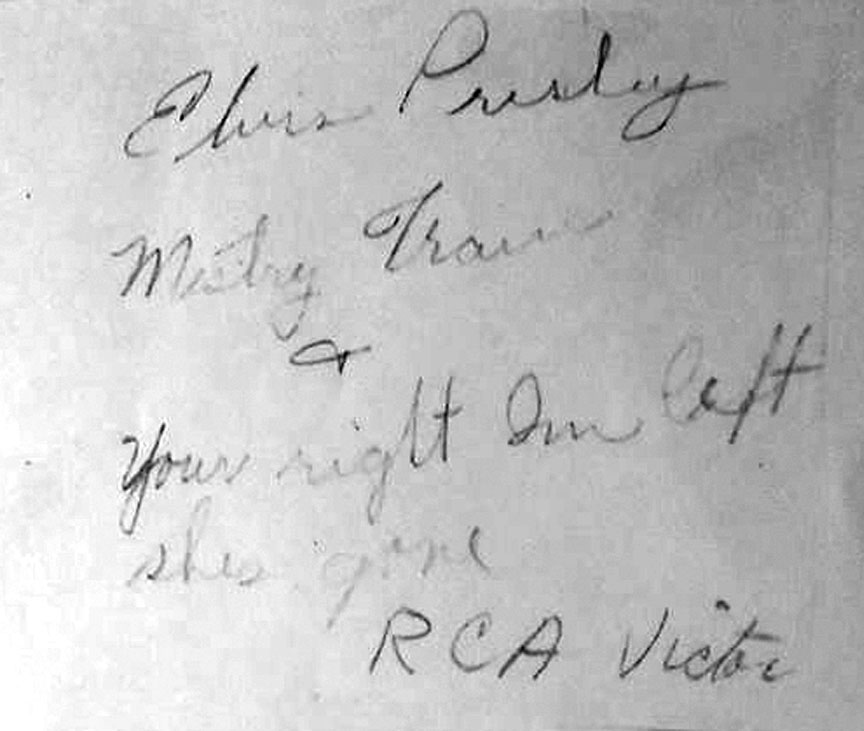 Elvis Presley
Mistry Train
&
Your right Im left
shes gone
RCA Victor